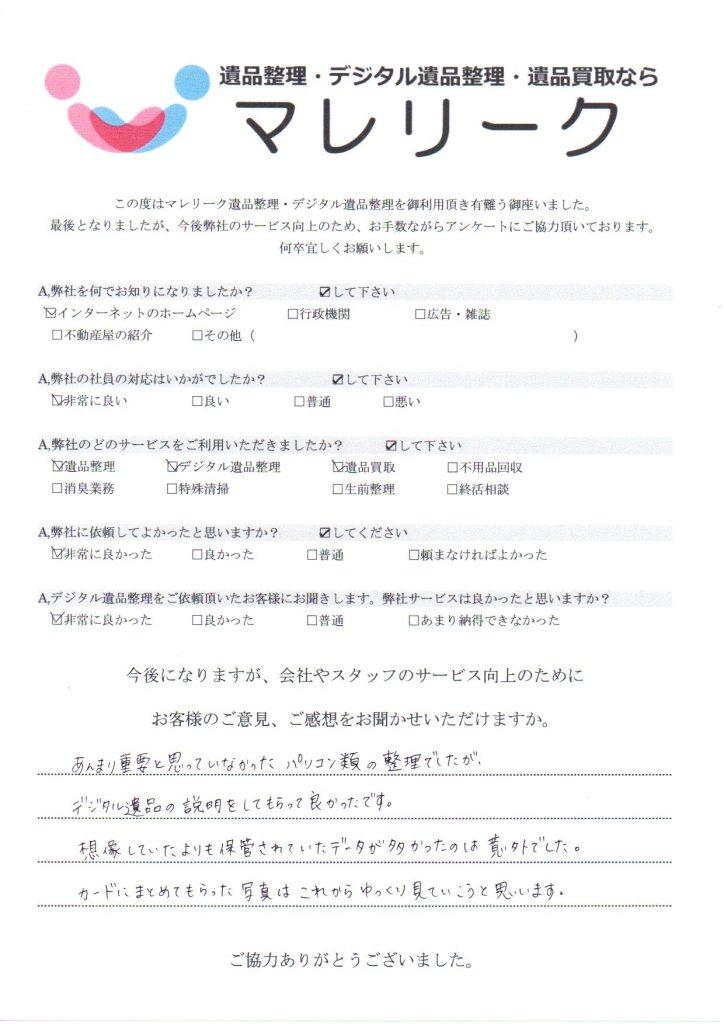 遺品整理・デジタル遺品整理・遺品買取なら
マレリーク
この度はマレリーク遺品整理・デジタル遺品整理を御利用頂き有難う御座いました。
最後となりましたが、今後弊社のサービス向上のため、お手数ながらアンケートにご協力頂いております。
何卒宜しくお願いします。
A,弊社を何でお知りになりましたか? ☑して下さい
☑インターネットのホームページ □行政機関 □広告・雑誌
□不動産屋の紹介 □その他( )
A,弊社の社員の対応はいかがでしたか? ☑して下さい
☑非常に良い □良い □普通 □悪い
A,弊社のどのサービスをご利用いただきましたか? ☑して下さい
☑遺品整理 ☑デジタル遺品整理 ☑遺品買取 □不用品回収
□消臭業務 □特殊清掃 □生前整理 □終活相談
A,弊社に依頼してよかったと思いますか? ☑してください
☑非常に良かった □良かった □普通 □頼まなければよかった
A,デジタル遺品整理をご依頼頂いたお客様にお聞きします。弊社サービスは良かったと思いますか?
☑非常に良かった □良かった □普通 □あまり納得できなかった
今後になりますが、会社やスタッフのサービス向上のために
お客様のご意見、ご感想をお聞かせいただけますか。
あんまり重要と思っていなかったパソコン類の整理でしたが、
デジタル遺品の説明をしてもらって良かったです。
想像していたよりも保管されていたデータが多かったのは意外でした。
カードにまとめてもらった写真はこれからゆっくり見ていこうと思います。
ご協力ありがとうございました。